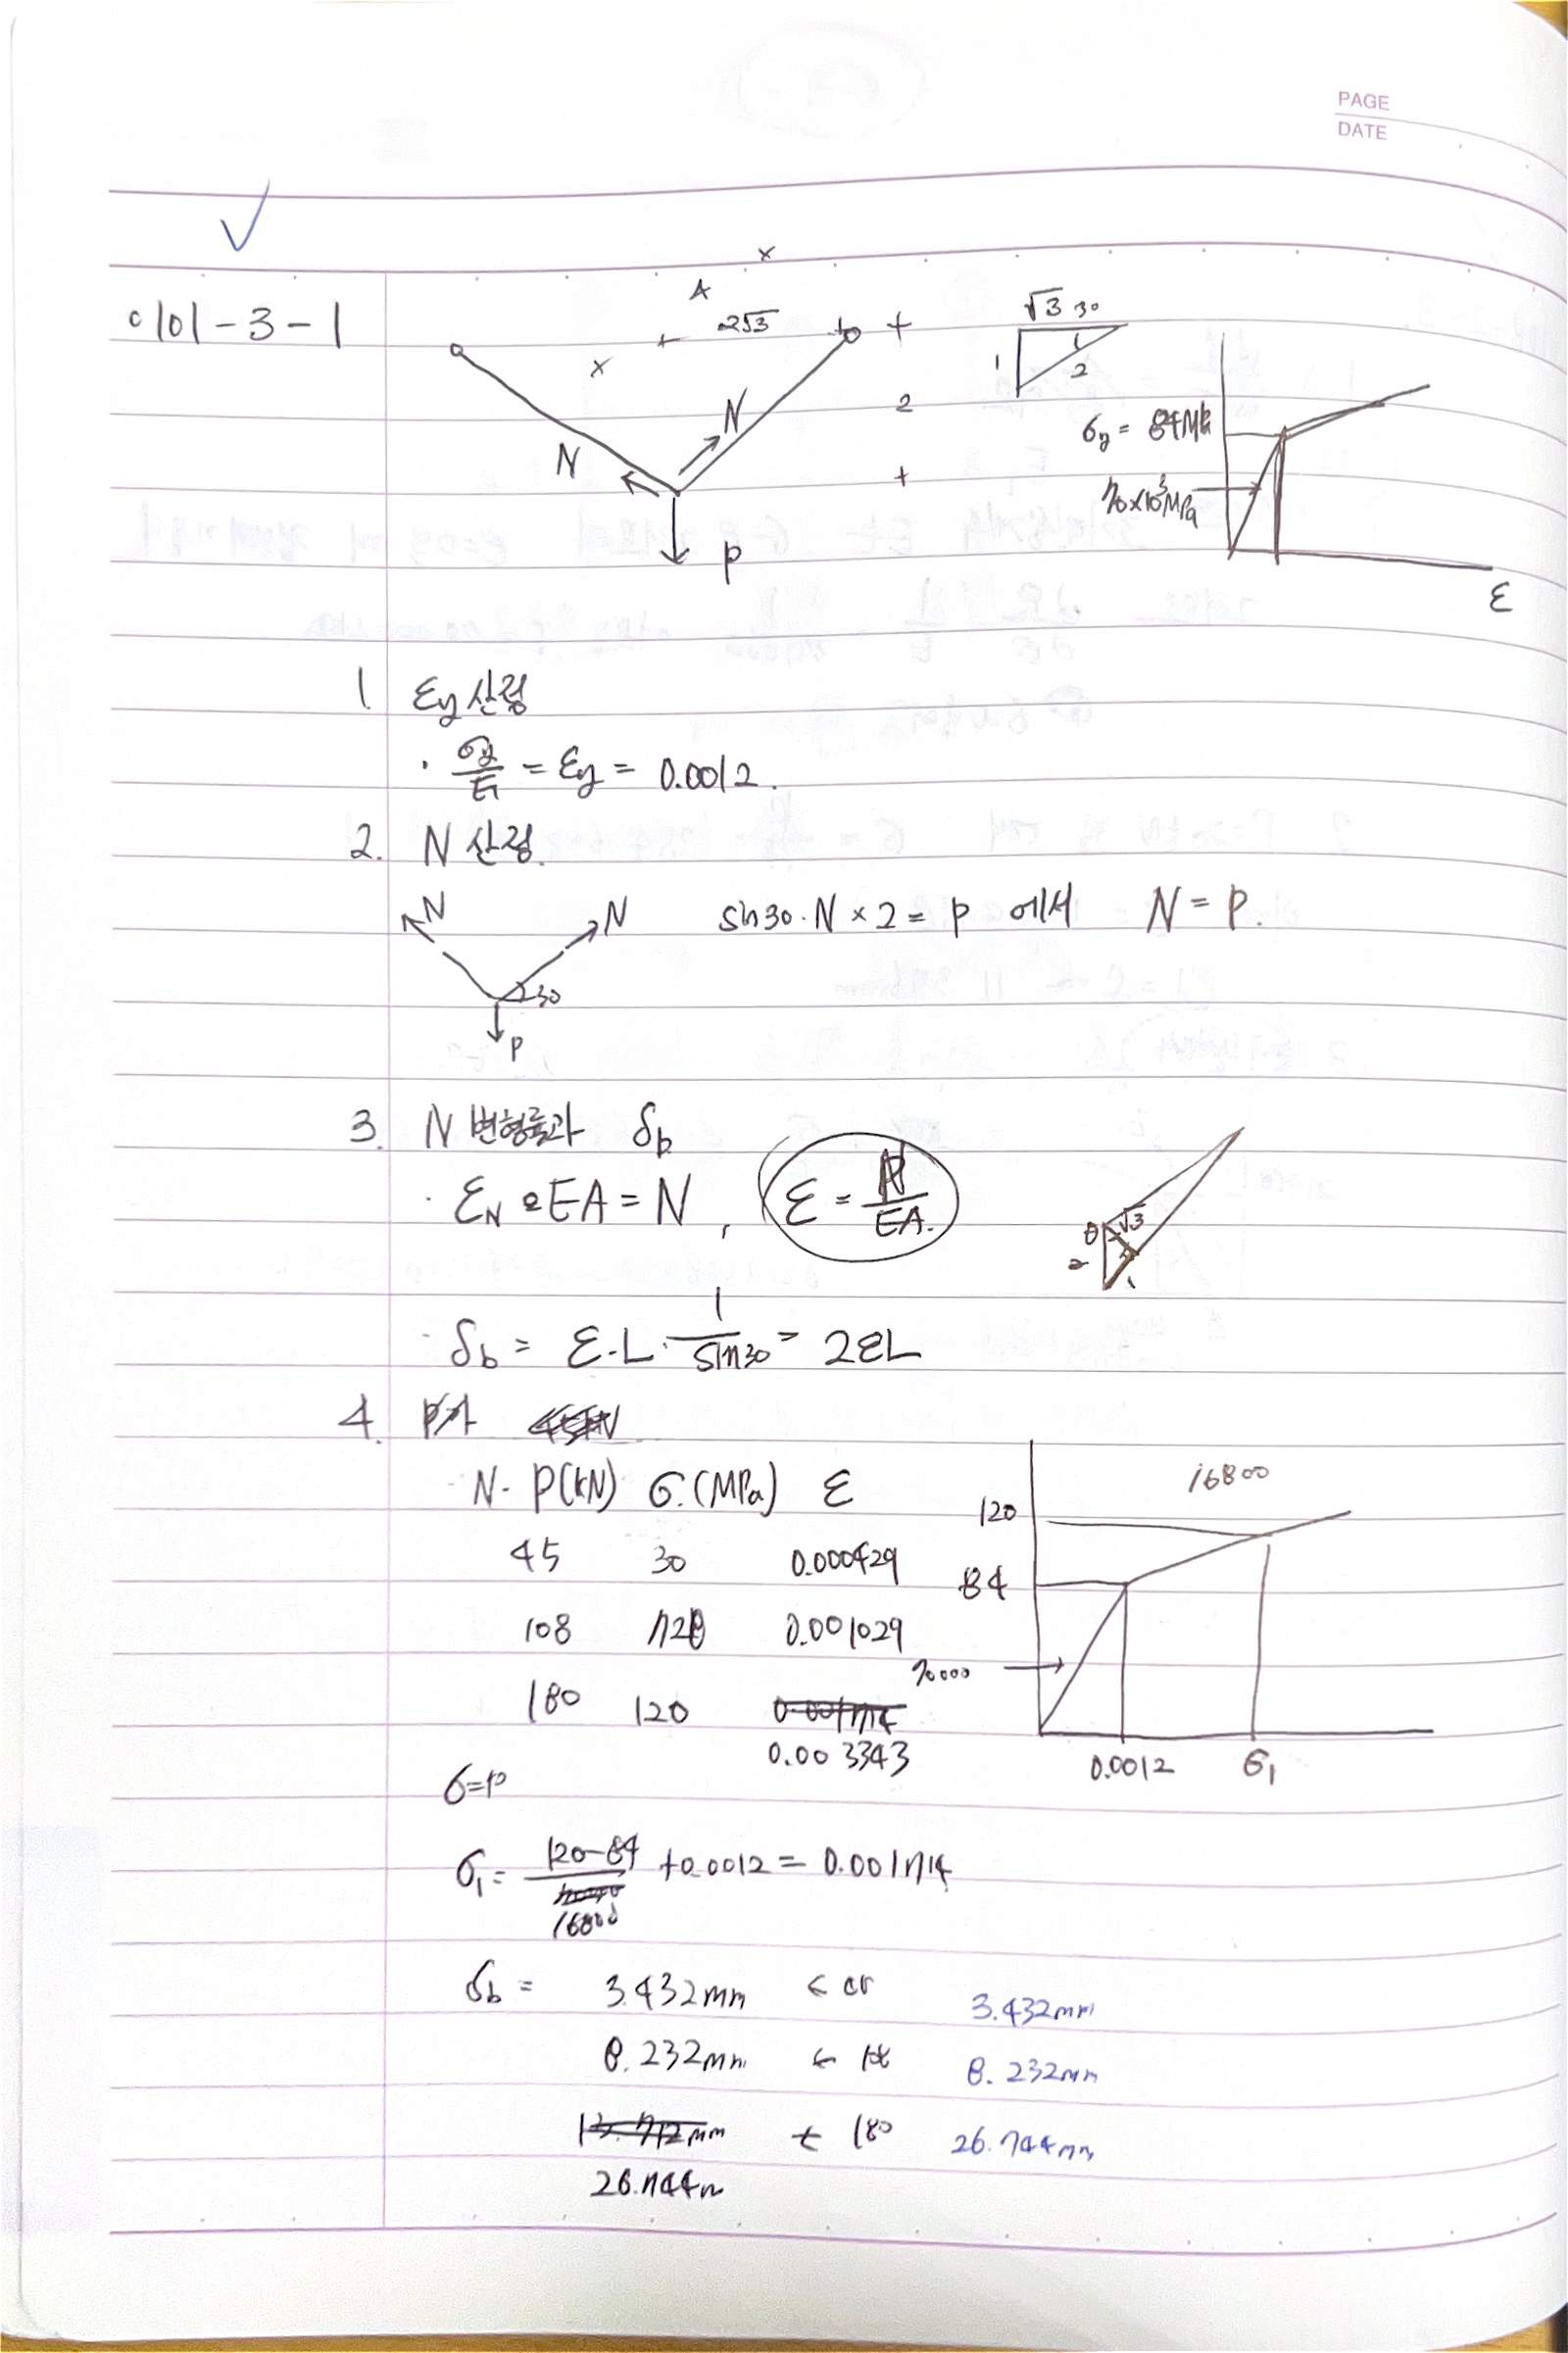 PAGE
DATE
101-3-1
A
2√3
2
N
N
P
√3 30
1
2
σy = 84MPa
70×10³MPa
ε
1 εy 산정
· σy/E1 = εy = 0.0012.
2. N 산정.
N N sin30·N×2 = P 에서 N = P.
30
P
3. N 변형률과 δb
· εN·EA = N, ε = N/EA.
θ √3
2 1
· δb = ε·L·1/sin30 = 2εL
4. P가
N- P(kN) σ.(MPa) ε
45 30 0.000429
108 72 0.001029
180 120 0.001714
0.003343
16800
120
84
70000
0.0012 σ1
σ=P
σ1 = (120-84)/16800 + 0.0012 = 0.001714
δb = 3.432mm ← 45 3.432mm
8.232mm ← 8.232mm
13.712mm ← 180 26.744mm
26.744m